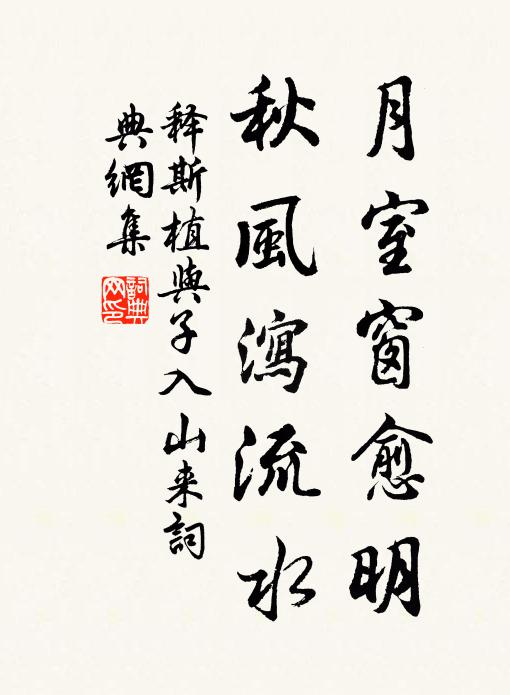 月室窗愈明
秋風瀉流水
释斯植與子入山来詞
典網集
詞典网印